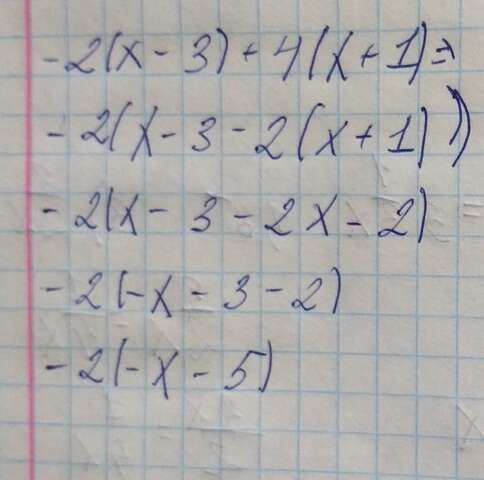 -2(x-3)+4(x+1)=
-2(x-3-2(x+1))
-2(x-3-2x-2)
-2(-x-3-2)
-2(-x-5)